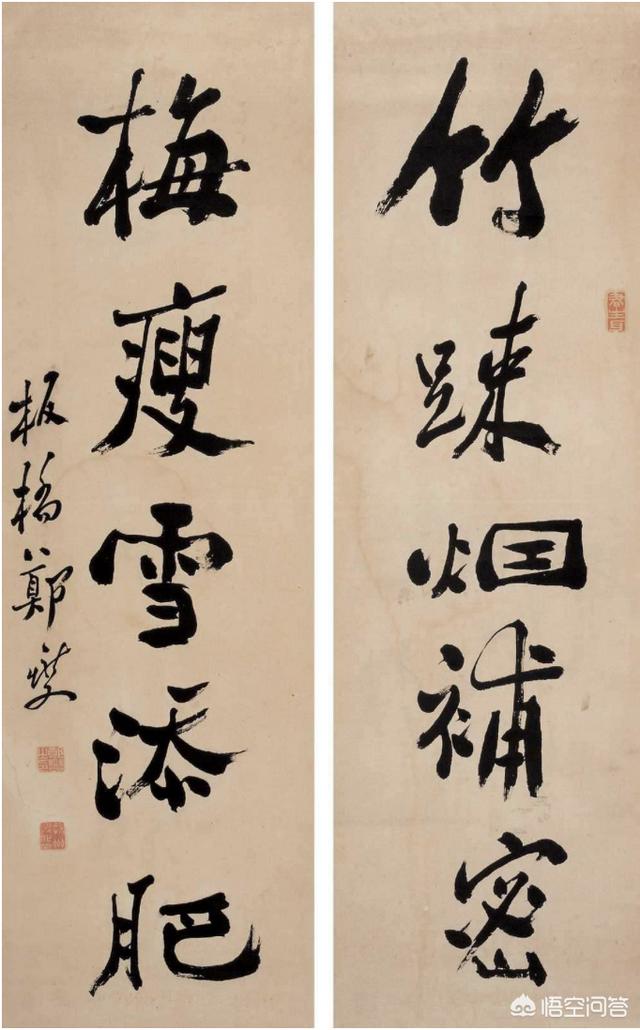 竹踈烟補密
梅瘦雪添肥
板橋鄭燮
悟空问答